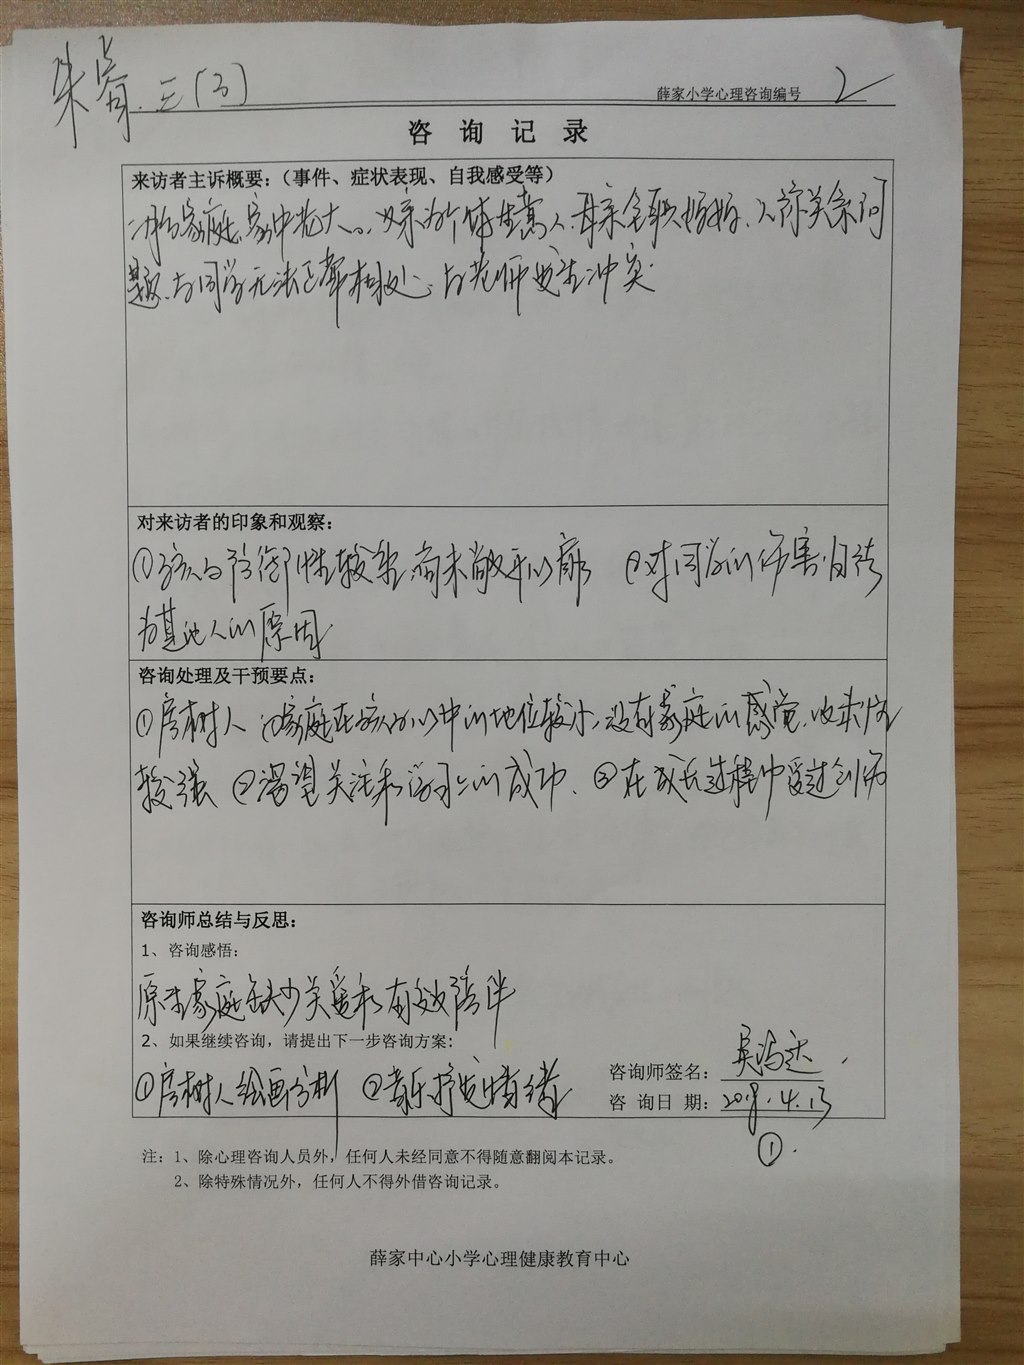 朱睿.三(3)
薛家小学心理咨询编号 2
咨 询 记 录
来访者主诉概要：（事件、症状表现、自我感受等）
二胎家庭、家中老大。父亲为个体生意人.母亲全职妈妈、人际关系问
题、与同学无法正常相处、与老师发生冲突.
对来访者的印象和观察：
①孩子防御性较强,尚未敞开心扉 ②对同学的伤害归结
为其他人的原因
咨询处理及干预要点：
①房树人 家庭在孩子心中的地位较小,没有家庭的感觉.
较强 ②渴望关注和学习上的成功、③在成长过程中受过创伤
咨询师总结与反思：
1、咨询感悟：
原生家庭缺少关爱和有效陪伴
2、如果继续咨询，请提出下一步咨询方案：
①房树人绘画分析 ②音乐抒发情绪
咨询师签名：
咨 询 日 期：4.13
①.
注：1、除心理咨询人员外，任何人未经同意不得随意翻阅本记录。
2、除特殊情况外，任何人不得外借咨询记录。
薛家中心小学心理健康教育中心